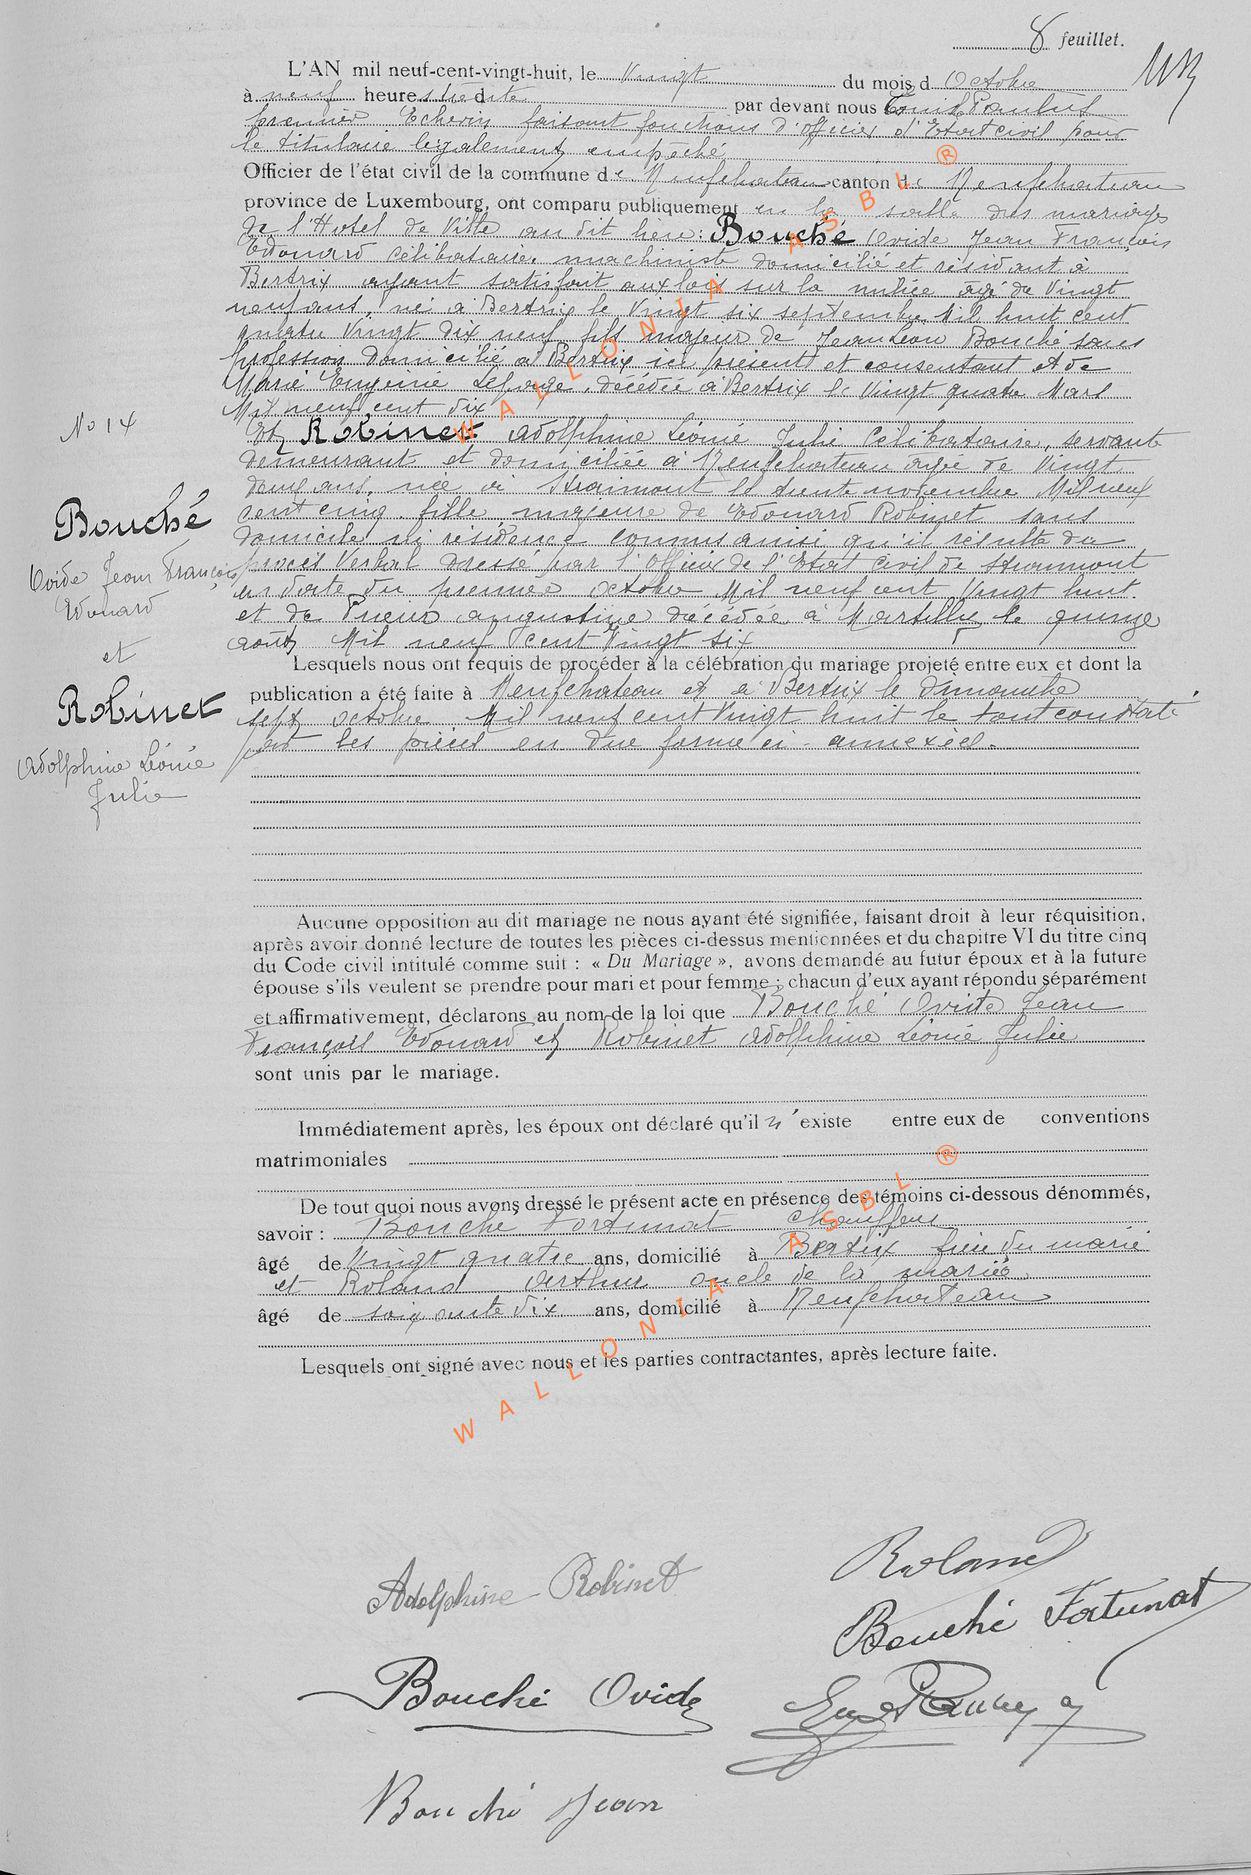 8 feuillet.
L'AN mil neuf-cent-vingt-huit, le Vingt du mois d Octobre
à neuf heures trente par devant nous
premier Echevin faisant fonctions d'officier d'Etat civil pour
le titulaire légalement empêché
Officier de l'état civil de la commune de Neufchateau canton de Neufchateau
province de Luxembourg, ont comparu publiquement en la salle des mariages
de l'Hotel de Ville au dit lieu: Bouché Ovide Jean François
Edouard célibataire, machiniste domicilié et résidant à
Bertrix ayant satisfait aux lois sur la milice agé de Vingt
neuf ans, né à Bertrix le Vingt six septembre Mil huit cent
quatre Vingt dix neuf, fils majeur de Jean Léon Bouché sans
profession domicilié à Bertrix ici présent et consentant et de
Marie Eugénie Lepage, décédée à Bertrix le Vingt quatre Mars
Mil neuf cent dix
Et Robinet Adolphine Léonie Julie Célibataire, servante
demeurant et domiciliée à Neufchateau agée de Vingt
deux ans, née à Straimont le trente novembre Mil neuf
cent cinq, fille majeure de Edouard Robinet sans
domicile ni résidence connus ainsi qu'il résulte du
procès Verbal dressé par l'Officier de l'Etat Civil de Straimont
en date du premier octobre Mil neuf cent Vingt huit
et de augustine décédée à le quinze
août Mil neuf cent Vingt six
No 14
Bouché
Ovide Jean François
Edouard
et
Robinet
Adolphine Léonie
Julie
Lesquels nous ont requis de procéder à la célébration du mariage projeté entre eux et dont la
publication a été faite à Neufchateau et à Bertrix le dimanche
sept octobre Mil neuf cent Vingt huit le tout constaté
par les pièces en due forme ci-annexées.
Aucune opposition au dit mariage ne nous ayant été signifiée, faisant droit à leur réquisition,
après avoir donné lecture de toutes les pièces ci-dessus mentionnées et du chapitre VI du titre cinq
du Code civil intitulé comme suit : « Du Mariage », avons demandé au futur époux et à la future
épouse s'ils veulent se prendre pour mari et pour femme ; chacun d'eux ayant répondu séparément
et affirmativement, déclarons au nom de la loi que Bouché Ovide Jean
François Edouard et Robinet Adolphine Léonie Julie
sont unis par le mariage.
Immédiatement après, les époux ont déclaré qu'il n'existe entre eux de conventions
matrimoniales
De tout quoi nous avons dressé le présent acte en présence des témoins ci-dessous dénommés,
savoir : Bouché Fortunat chauffeur
âgé de Vingt quatre ans, domicilié à Bertrix frère du marié
et Roland Arthur oncle de la mariée
âgé de soixante dix ans, domicilié à Neufchateau
Lesquels ont signé avec nous et les parties contractantes, après lecture faite.
WALLONIA ASBL ®
WALLONIA ASBL ®
Adolphine Robinet
Roland
Bouché Fortunat
Bouché Ovide
Bouché Jean